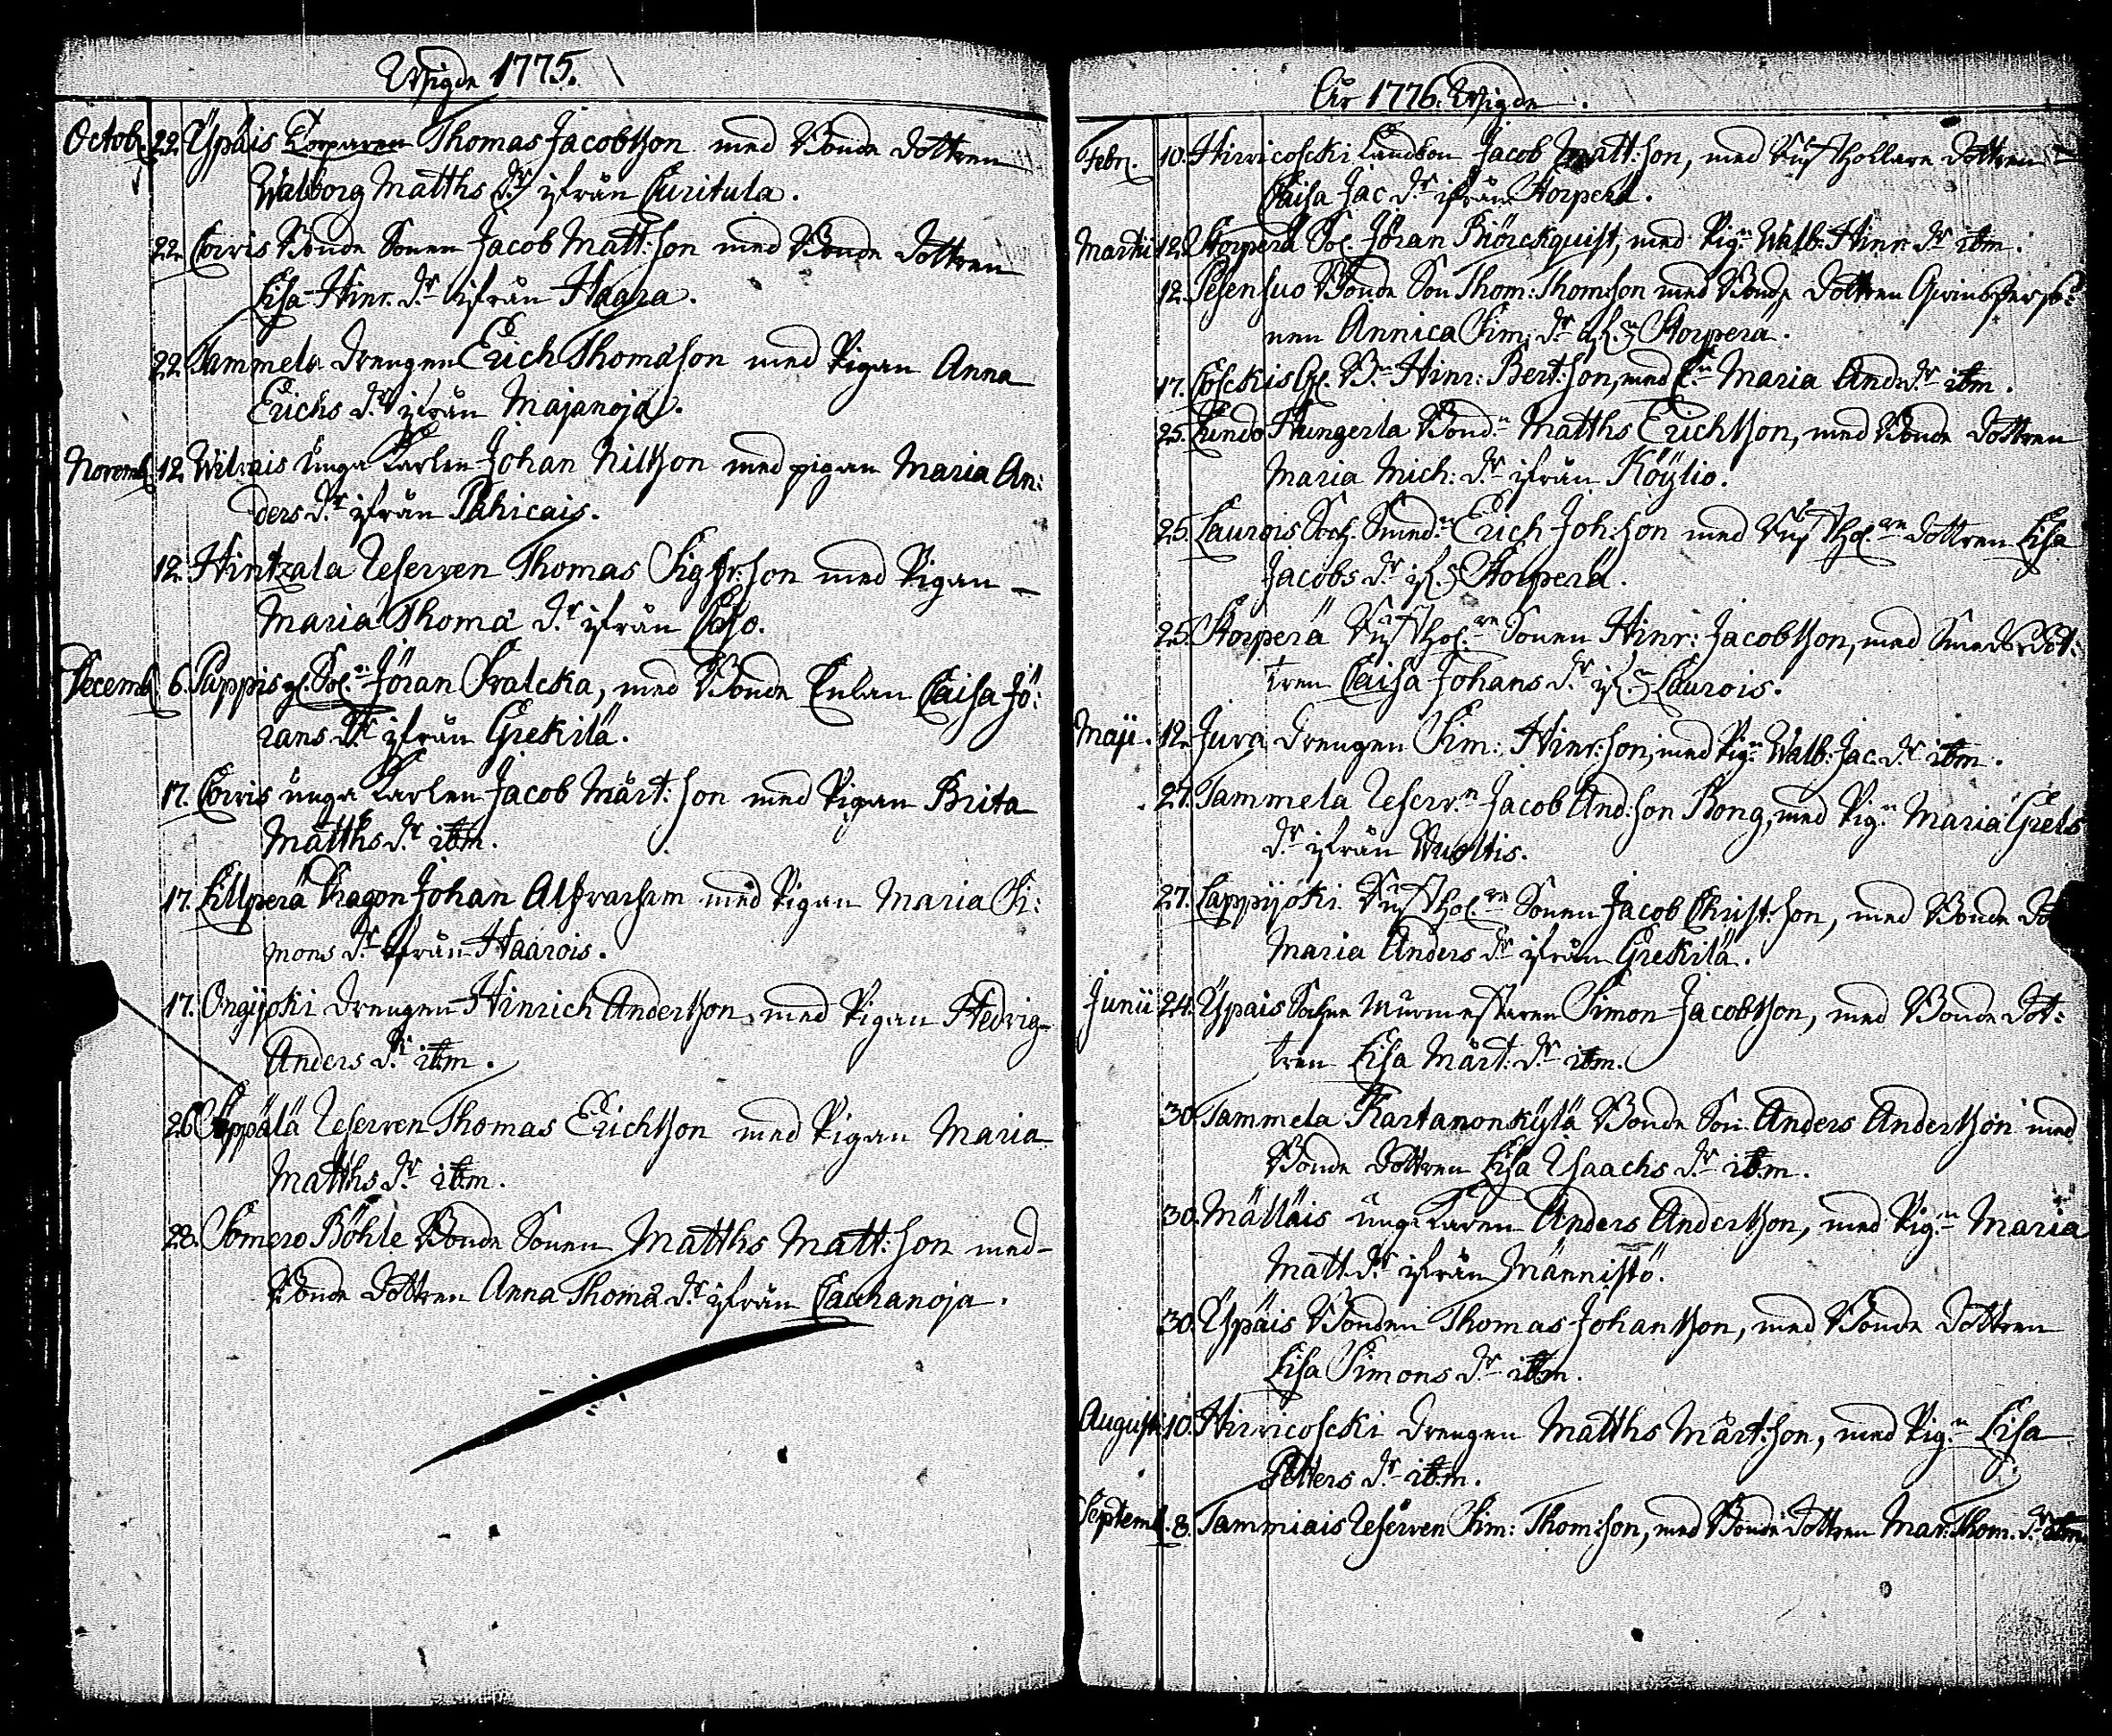 Wigde 1775.
Octob. 22. Ypäis Torparen Thomas Jacobsson med Bonde dottren
Walborg Matths dr ifrån Curitula.
22. Corvis Bonde Sonen Jacob Matt:son med Bonde dottren
Lisa Hinr. dr ifrån Haara.
22. Tammela drengen Erich Thomasson med Pigan Anna
Erichs dr ifrån Majanoja.
Novemb. 12. Wilvais unga Karlen Johan Nilsson med pigan Maria An:
ders dr ifrån Pahicais.
12. Hintzala Reserven Thomas Sigfr:son med Pigan
Maria Thoma dr ifrån
Decemb. 6. Pappis gl. Sol:n Jöran Skalcka, med Bonde Enkan Caisa Jö:
rans dr ifrån Grekilä.
17. Corvis unga Karlen Jacob Märt:son med Pigan Brita
Matths dr ibm.
17. Lillperä Dragon Johan Alfvarham med Pigan Maria Si:
mons dr ifrån Haarois.
17. Ongijoki drengen Hinrich Andersson, med Pigan Hedvig
Anders dr ibm.
26. Seppälä Reserven Thomas Erichsson med Pigan Maria
Matths dr ibm.
28. Somero Böhle Bonde Sonen Matths Matt:son med
Bonde dottren Anna Thoma dr ifrån Cauhanoja.
År 1776. Wigde.
Febr. 10. Hirvicoscki Landbon Jacob Matt:son, med Rusthollare dottren
Caisa Jac. dr ifrån Storperä.
Martii 12. Storperä Sol. Jöran Biörckquist, med Pig:n Walb: Hinr. dr ibm.
12. Pesensuo Bonde Son Thom: Thomsson med Bonde dottren
nen Annica Sim: dr if:n Storperä.
17. Coskis Gl. B:n Hinr: Bert:son, med E:n Maria And: dr ibm.
25. Lundo Hungerla Bond:n Matths Erichsson, med Bonde dottren
Maria Mich: dr ifrån Köylio.
25. Laurois Sock. Smed:n Erich Joh:son med Rusthol:ren dottren Lisa
Jacobs dr if:n Storperä.
25. Storperä Rusthol:ren Sonen Hinr: Jacobsson, med Smeds dot:
tren Caisa Johans dr if:n Laurois.
Maji. 12. Jura drengen Sim: Hinr:son, med Pig:n Walb: Jac. dr ibm.
27. Tammela Reserv:n Jacob And:son Bong, med Pig:n Maria Grels
dr ifrån Wuoltis.
27. Lappijoki Rusthol:ren Sonen Jacob Christ:son, med Bonde
Maria Anders dr ifrån Grekilä.
Junii 24. Ypäis Sockne Murmestaren Simon Jacobsson, med Bonde dot:
tren Lisa Märt: dr ibm.
30. Tammela Kartanonkylä Bonde Son Anders Andersson med
Bonde dottren Lisa Ysaachs dr ibm.
30. Mälläis unge Karen Anders Andersson, med Pig:n Maria
Matt. dr ifrån Männistö.
30. Ypäis Bonden Thomas Johansson, med Bonde dottren
Lisa Simons dr ibm.
Augusti 10. Hirvicoscki drengen Matths Märt:son, med Pig:n Lisa
Petters dr ibm.
Septemb. 8. Tammiais Reserven Sim: Thom:son, med Bonde dottren Mar: Thom. dr ibm.